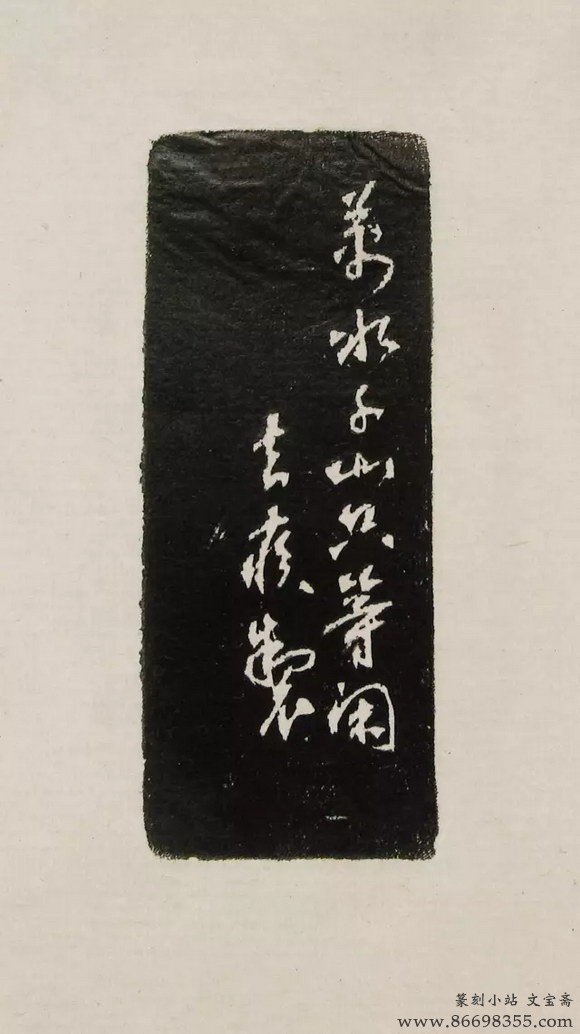 萬水千山只等閑
去疾製
篆刻小站 文宝斋
www.86698355.com